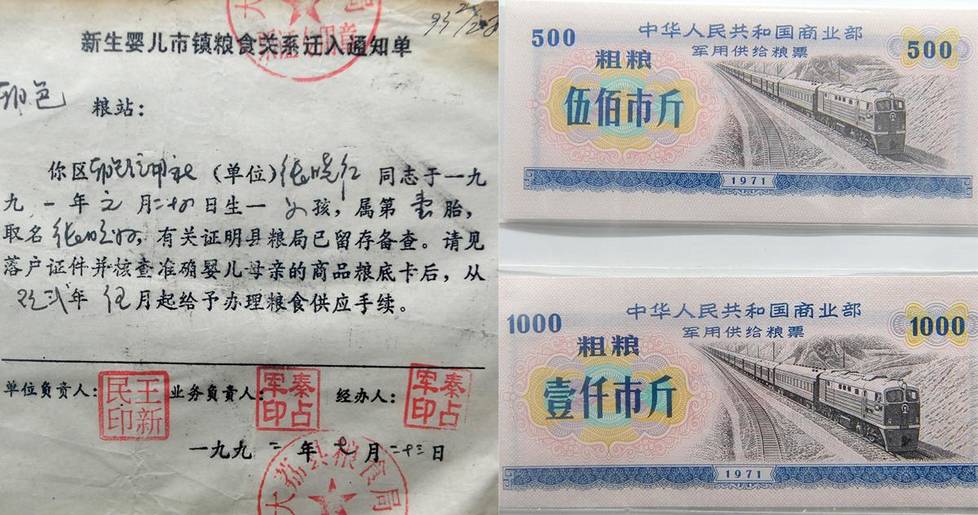 新生婴儿市镇粮食关系迁入通知单
粮站：
你区 （单位）张晓红 同志于一九
九一年元月二十四日生一女孩，属第壹胎，
取名 ，有关证明县粮局已留存备查。请见
落户证件并核查准确婴儿母亲的商品粮底卡后，从
年 月起给予办理粮食供应手续。
单位负责人：
王新民印
业务负责人：
秦占军印
经办人：
秦占军印
一九九 年 月二十三日
大荔县粮食局
500
中华人民共和国商业部
军用供给粮票
500
粗粮
伍佰市斤
1971
1000
中华人民共和国商业部
军用供给粮票
1000
粗粮
壹仟市斤
1971